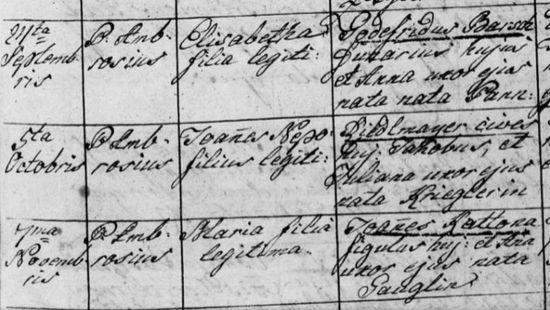 21ta
Septemb-
ris
P. Amb-
rosius
Elisabetha
filia legiti:
Godefridus Barsch
Funarius hujus
et Anna uxor ejus
nata nata Pann:
5ta
Octobris
P. Amb-
rosius
Joañes Nepo
filius legiti:
Riedlmayer cives
huj: Jakobus, et
Juliana uxor ejus
nata Krieglerin
7ma
Novemb-
ris
P. Amb-
rosius
Maria filia
legitima.
Joañes Kattona
figulus huj: et Ana
uxor ejus nata
Gauglin